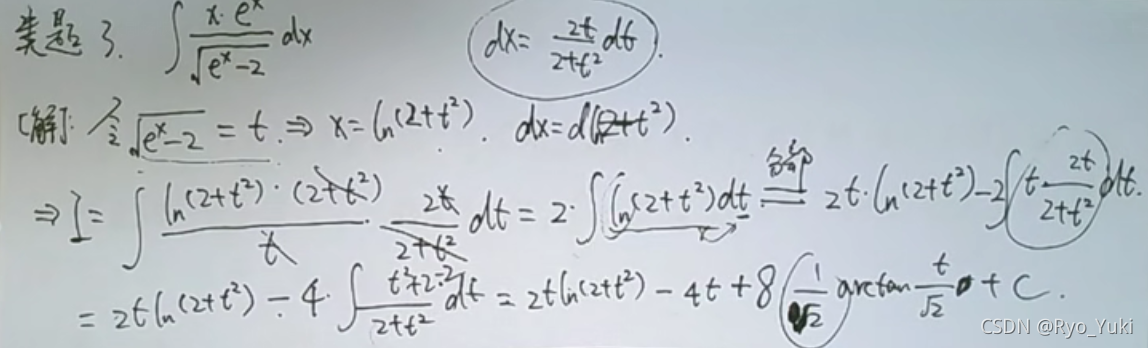 类题3. ∫ x·eˣ/√(eˣ-2) dx    dx = 2t/(2+t²) dt.
[解]: 令 √(eˣ-2) = t. ⇒ x = ln(2+t²). dx = d(2+t²).
⇒ I = ∫ ln(2+t²)·(2+t²)/t · 2t/(2+t²) dt = 2·∫ ln(2+t²)dt 分部 2t·ln(2+t²) - 2∫ t·2t/(2+t²) dt.
= 2t ln(2+t²) - 4·∫ (t²+2-2)/(2+t²) dt = 2t ln(2+t²) - 4t + 8 1/√2 arctan t/√2 + C.
CSDN @Ryo_Yuki